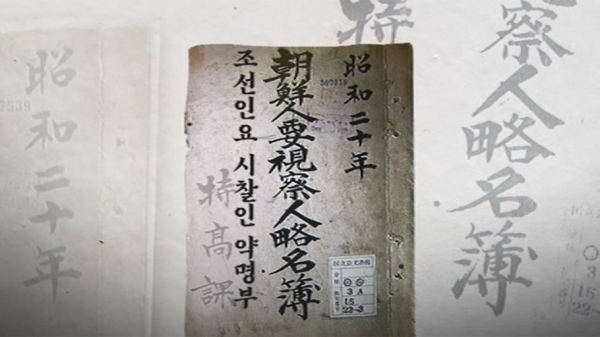 昭和二十年
朝鮮人要視察人略名簿
조선인요 시찰인 약명부
特高課
3 A
15
22-3
昭和二十年
特
察人略名簿